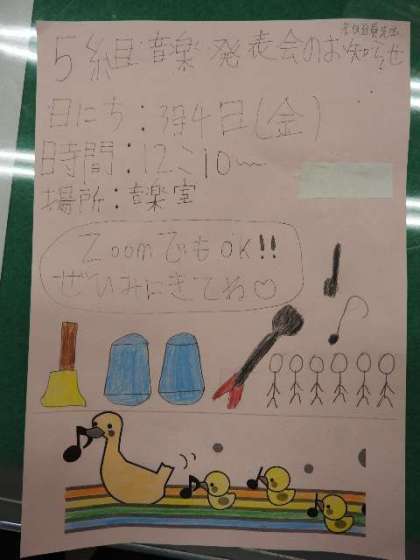 5組音楽発表会のお知らせ
日にち：3月4日(金)
時間：12:10〜
場所：音楽室
ZoomでもOK!!
ぜひみにきてね♡